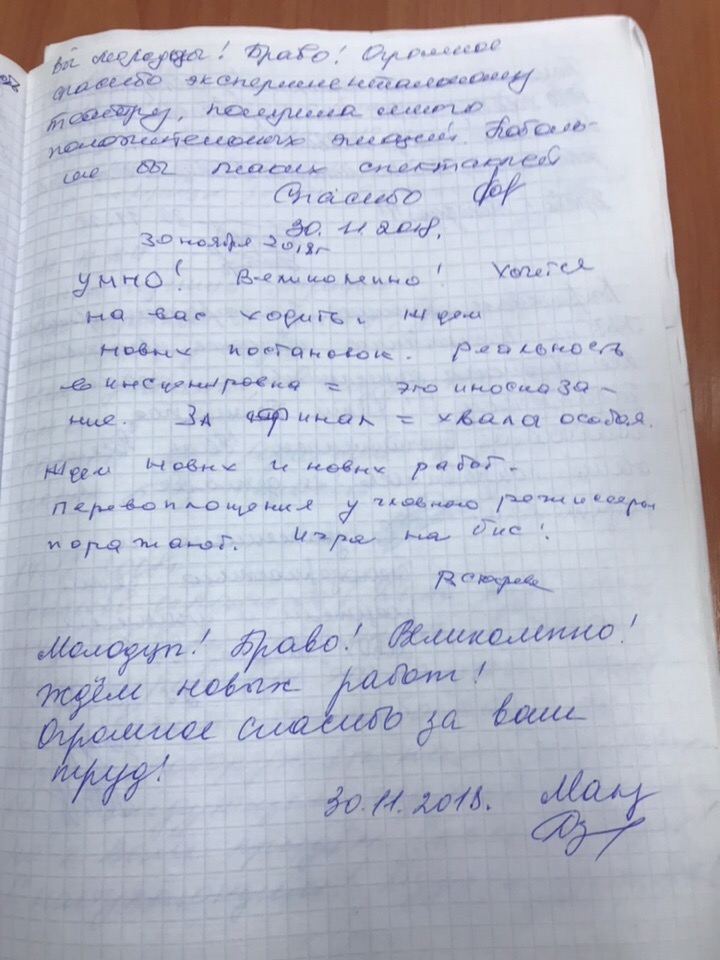 Вы молодцы! Браво! Огромное
спасибо экспериментальному
театру, получила много
положительных эмоций. Поболь-
ше бы таких спектаклей
Спасибо
30.11.2018.
30 ноября 2018г
Умно! Великолепно! Хочется
на вас ходить. Ждем
новых постановок. Реальность
в инсценировка = это иносказа-
ние. За финал = хвала особая.
Ждем новых и новых работ.
Перевоплощения у главного режиссера
поражают. Игра на бис!
Молодцы! Браво! Великолепно!
Ждём новых работ!
Огромное спасибо за ваш
труд!
30.11.2018.